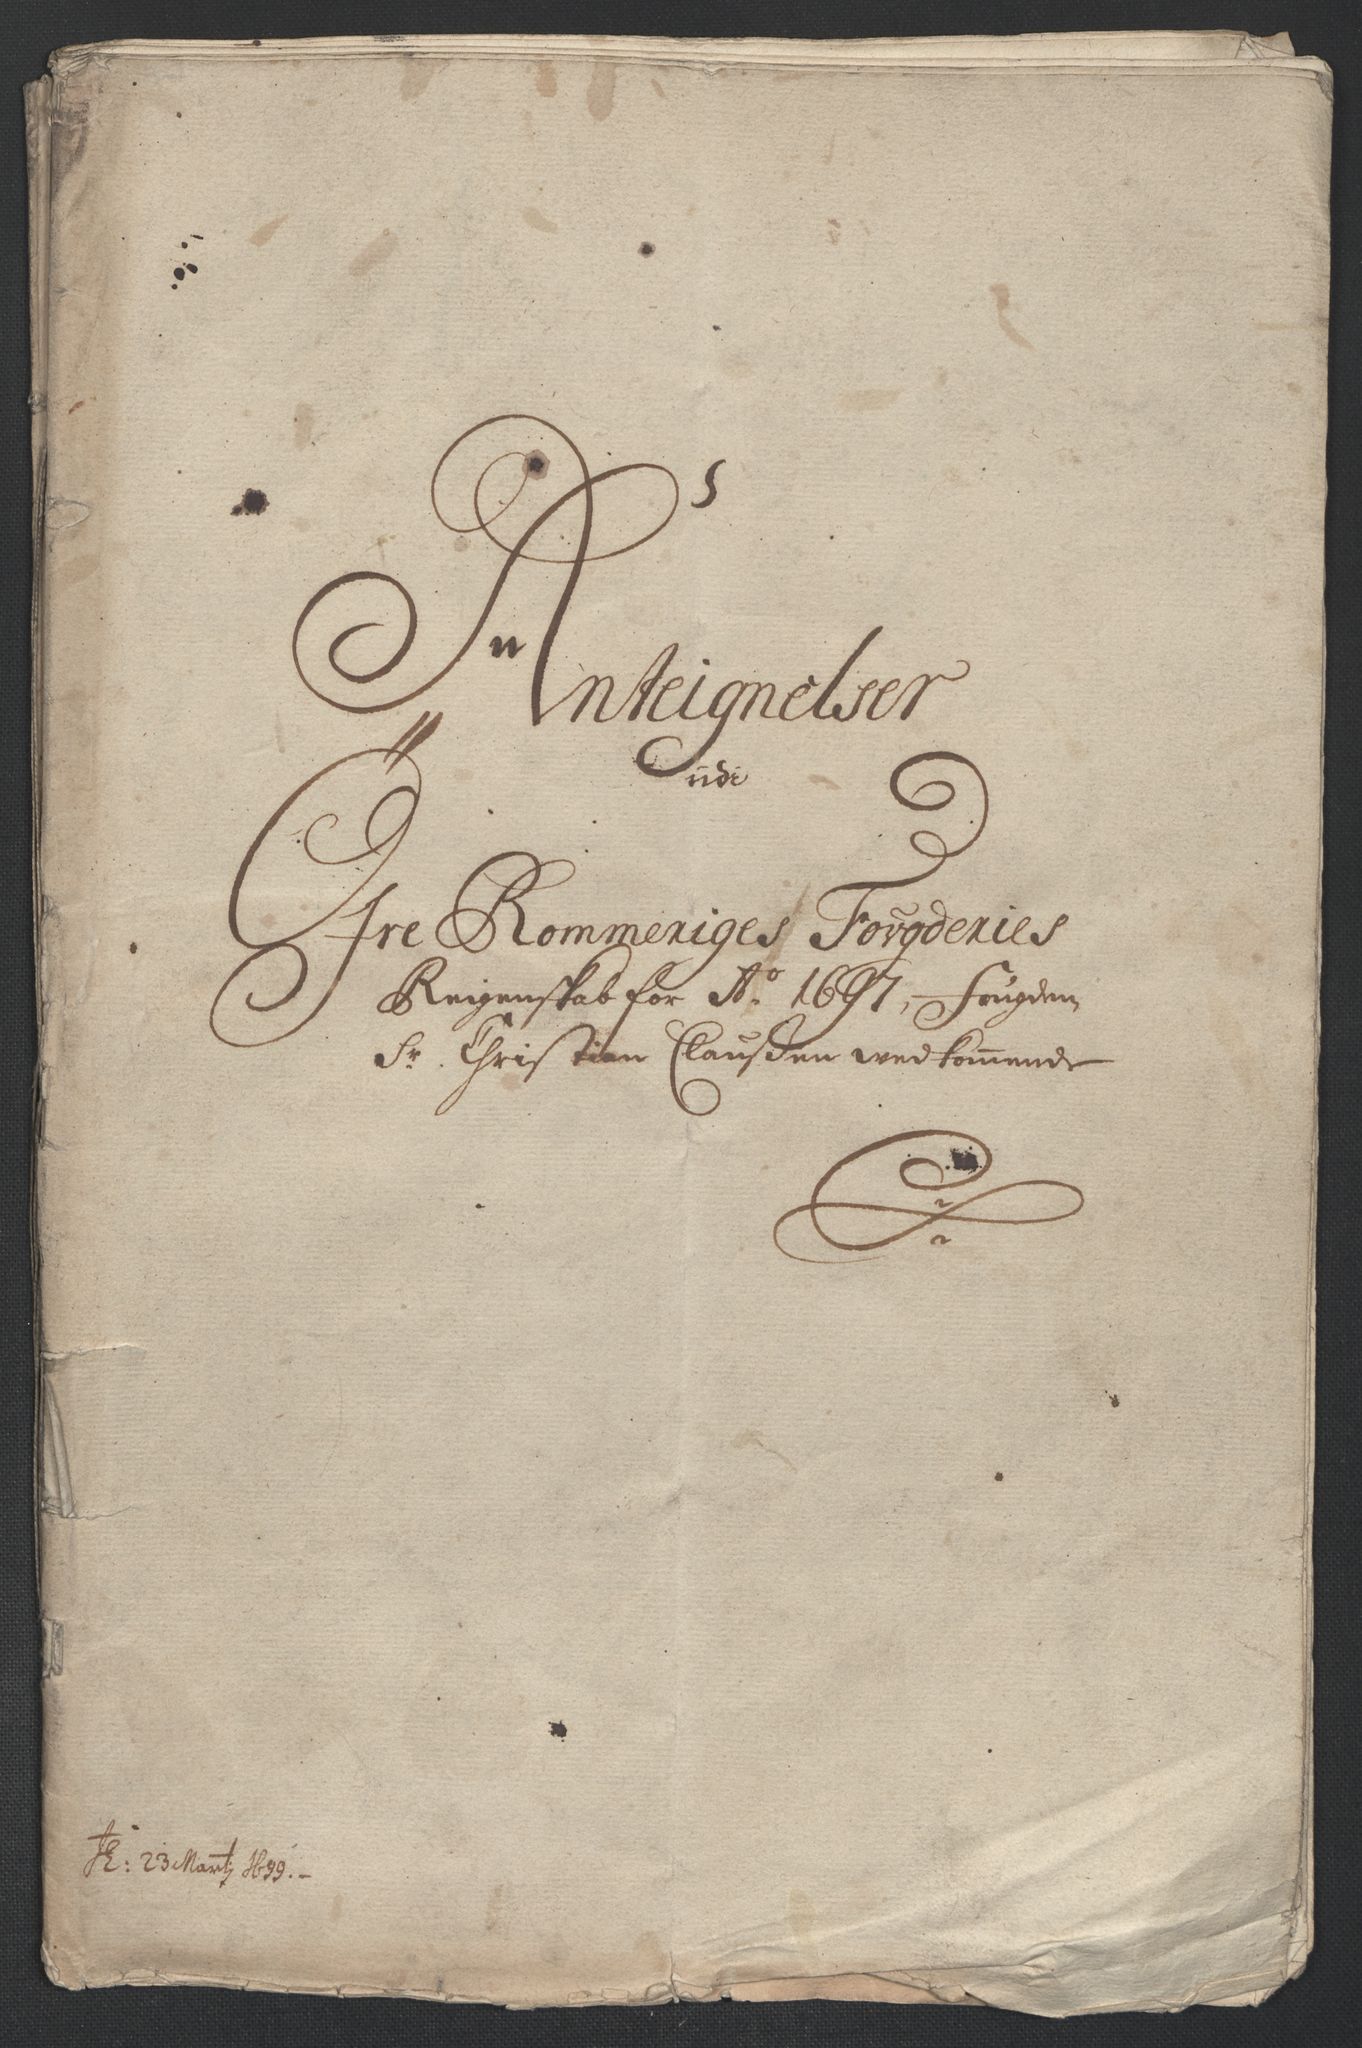 Anteignelser
udi
Øfre Rommeriges Fougderies
Reigenskab for Ao. 1697, Fougden
Sr. Christian Claussen vedkommende
23 Martj 1699.